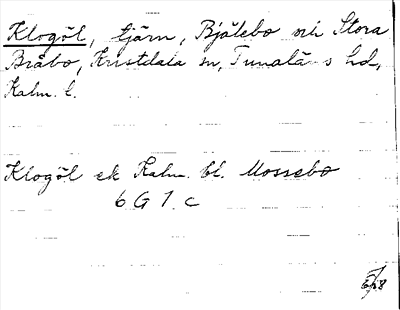 Klogöl, tjärn, Bjälebo och Stora
Bråbo, Kristdala sn, Tunaläns hd,
Kalm. l.
Klogöl ek Kalm. bl. Mossebo
6 G 1. c